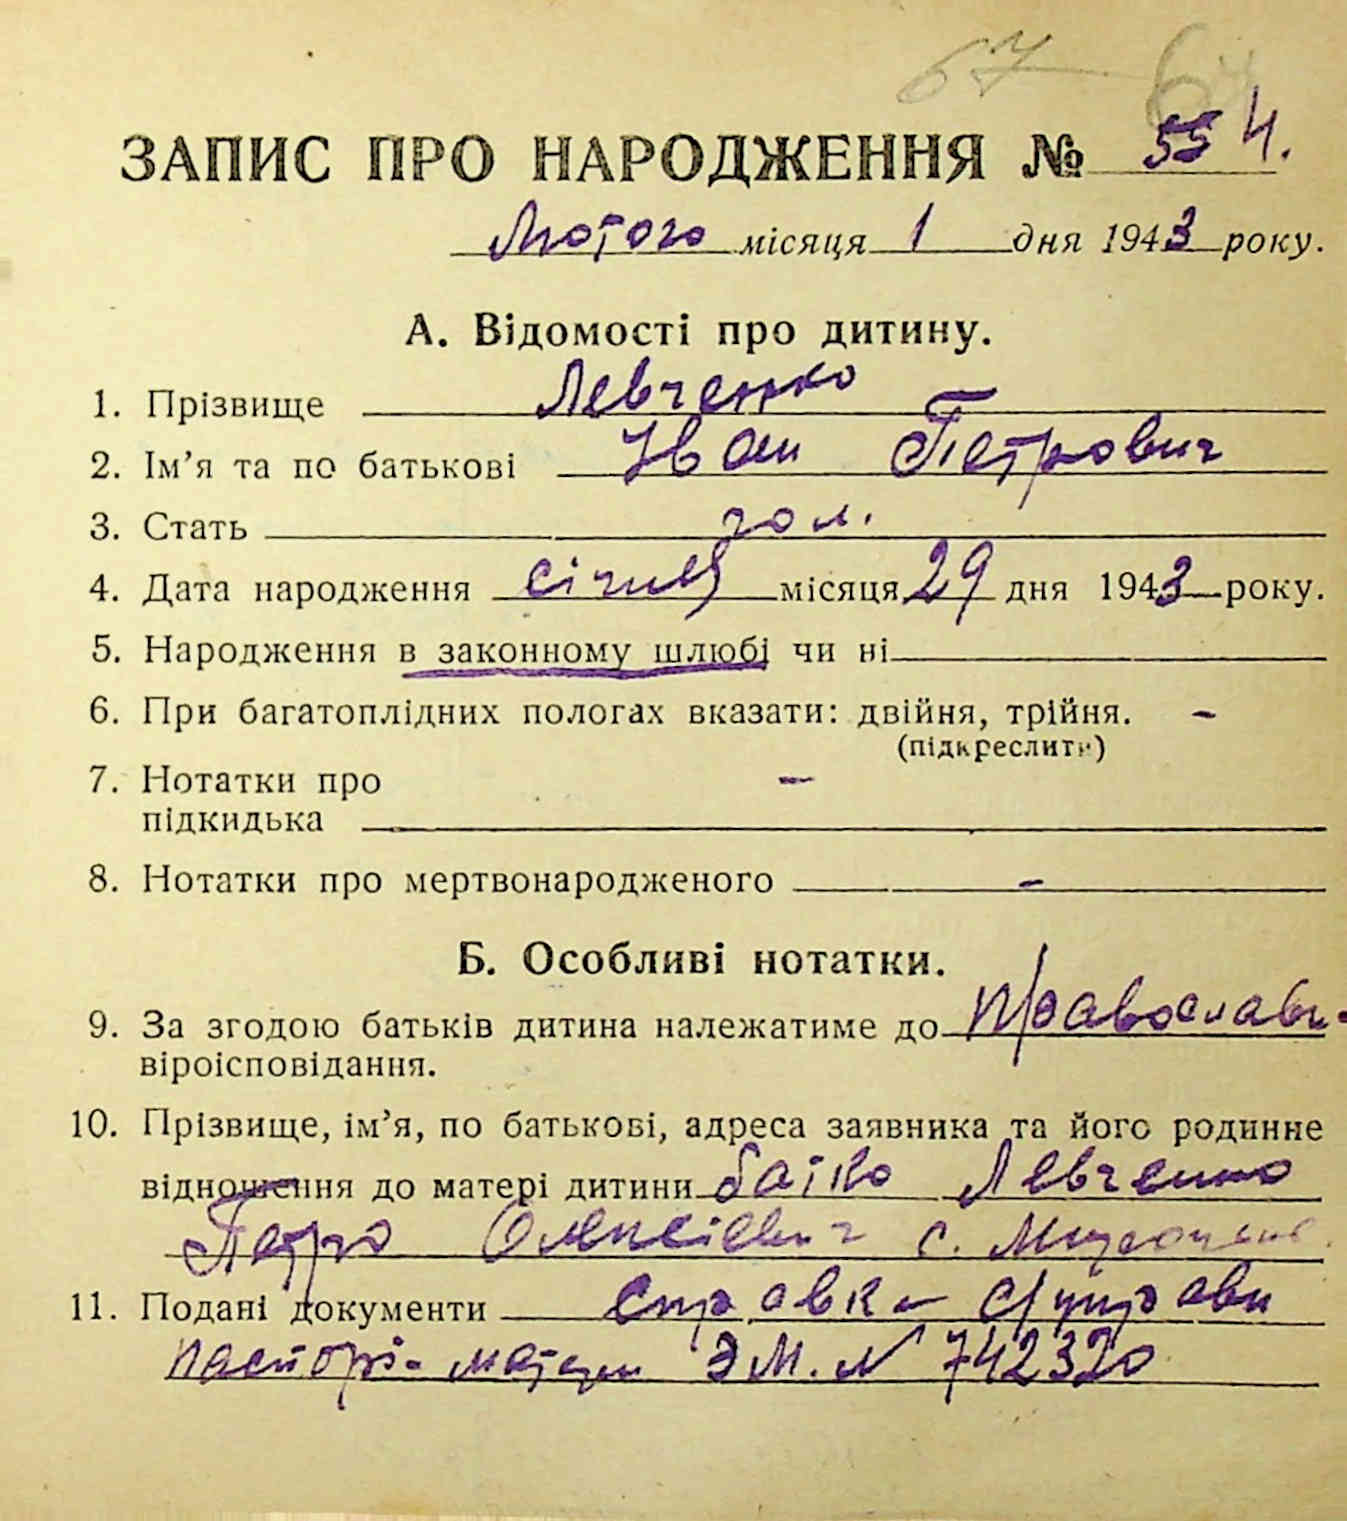 67 64
ЗАПИС ПРО НАРОДЖЕННЯ № 4.
Лютого місяця 1 дня 1943 року.
А. Відомості про дитину.
1. Прізвище Левченко
2. Ім’я та по батькові Іван Петрович
3. Стать чол.
4. Дата народження січня місяця 29 дня 1943 року.
5. Народження в законному шлюбі чи ні
6. При багатоплідних пологах вказати: двійня, трійня. -
(підкреслити)
7. Нотатки про -
підкидька
8. Нотатки про мертвонародженого -
Б. Особливі нотатки.
9. За згодою батьків дитина належатиме до Православн.
віроісповідання.
10. Прізвище, ім’я, по батькові, адреса заявника та його родинне
відношення до матері дитини батько Левченко
Петро Олексієвич с.
11. Подані документи справка с/управи
паспорт матери ЭМ. № 742320